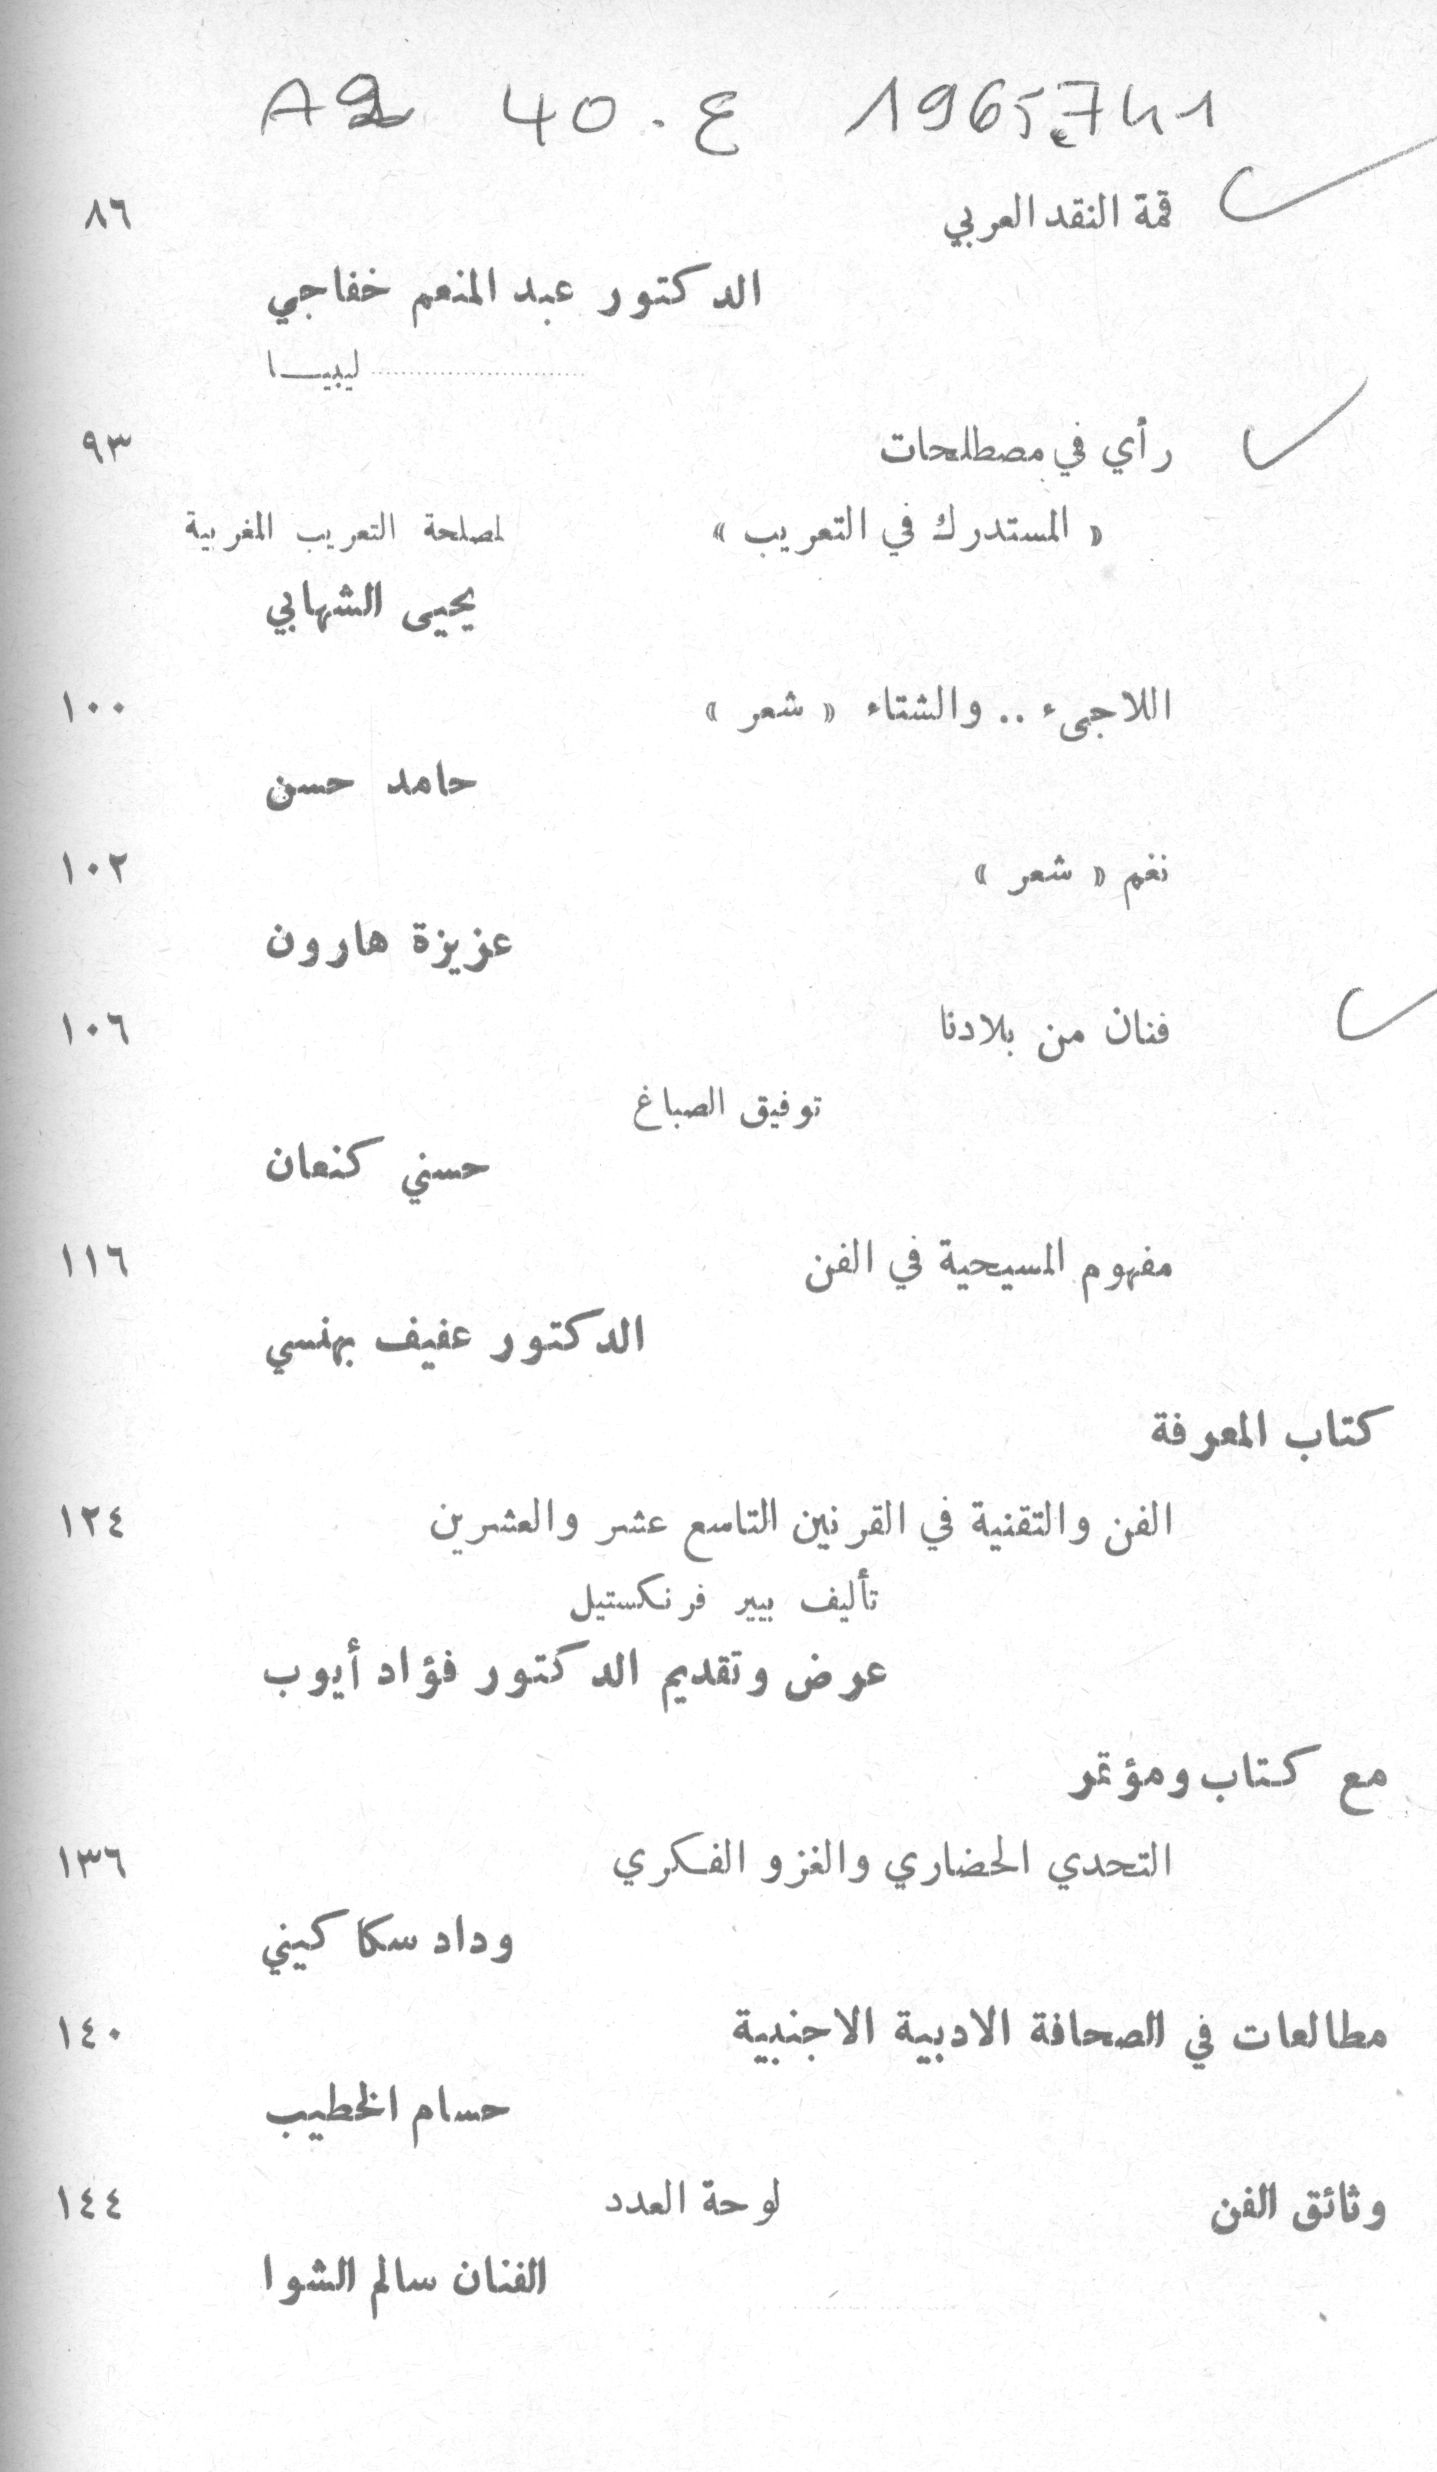 40 ع. 1965
قمة النقد العربي ٨٦
الدكتور عبد المنعم خفاجي
ليبيـــا
رأي في مصطلحات ٩٣
« المستدرك في التعريب » لمصلحة التعريب المغربية
يحيى الشهابي
اللاجىء .. والشتاء « شعر » ١٠٠
حامد حسن
نغم « شعر » ١٠٢
عزيزة هارون
فنان من بلادنا ١٠٦
توفيق الصباغ
حسني كنعان
مفهوم المسيحية في الفن ١١٦
الدكتور عفيف بهنسي
كتاب المعرفة
الفن والتقنية في القرنين التاسع عشر والعشرين ١٢٤
تأليف بيير فرنكستيل
عرض وتقديم الدكتور فؤاد أيوب
مع كتاب ومؤتمر
التحدي الحضاري والغزو الفكري ١٣٦
وداد سكاكيني
مطالعات في الصحافة الادبية الاجنبية ١٤٠
حسام الخطيب
وثائق الفن لوحة العدد ١٤٤
الفنان سالم الشوا